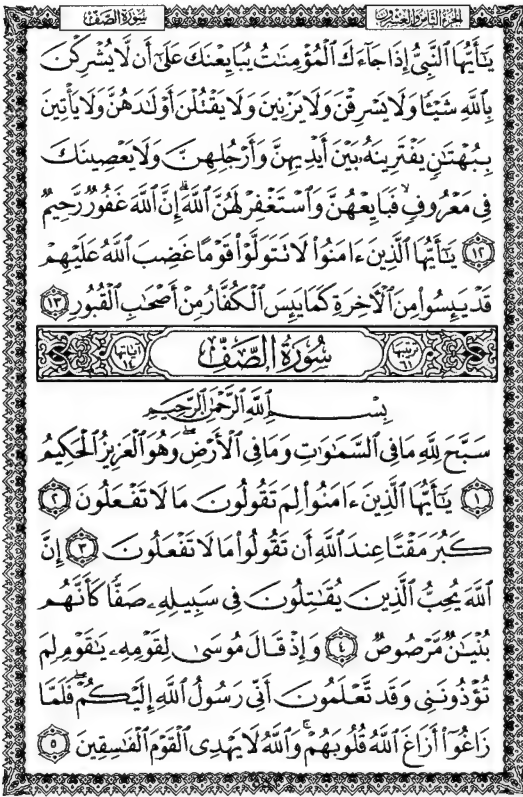 سُورَةُ الصَّفِّ الجُزْءُ الثَّامِنُ وَالعِشْرُونَ
يَٰٓأَيُّهَا ٱلنَّبِيُّ إِذَا جَآءَكَ ٱلْمُؤْمِنَٰتُ يُبَايِعْنَكَ عَلَىٰٓ أَن لَّا يُشْرِكْنَ
بِٱللَّهِ شَيْـًٔا وَلَا يَسْرِقْنَ وَلَا يَزْنِينَ وَلَا يَقْتُلْنَ أَوْلَٰدَهُنَّ وَلَا يَأْتِينَ
بِبُهْتَٰنٍ يَفْتَرِينَهُۥ بَيْنَ أَيْدِيهِنَّ وَأَرْجُلِهِنَّ وَلَا يَعْصِينَكَ
فِى مَعْرُوفٍ ۙ فَبَايِعْهُنَّ وَٱسْتَغْفِرْ لَهُنَّ ٱللَّهَ ۖ إِنَّ ٱللَّهَ غَفُورٌ رَّحِيمٌ
١٢ يَٰٓأَيُّهَا ٱلَّذِينَ ءَامَنُوا۟ لَا تَتَوَلَّوْا۟ قَوْمًا غَضِبَ ٱللَّهُ عَلَيْهِمْ
قَدْ يَئِسُوا۟ مِنَ ٱلْءَاخِرَةِ كَمَا يَئِسَ ٱلْكُفَّارُ مِنْ أَصْحَٰبِ ٱلْقُبُورِ ١٣
ترتيبها ٦١ سُورَةُ الصَّفِّ آياتها ١٤
بِسْمِ ٱللَّهِ ٱلرَّحْمَٰنِ ٱلرَّحِيمِ
سَبَّحَ لِلَّهِ مَا فِى ٱلسَّمَٰوَٰتِ وَمَا فِى ٱلْأَرْضِ ۖ وَهُوَ ٱلْعَزِيزُ ٱلْحَكِيمُ
١ يَٰٓأَيُّهَا ٱلَّذِينَ ءَامَنُوا۟ لِمَ تَقُولُونَ مَا لَا تَفْعَلُونَ ٢
كَبُرَ مَقْتًا عِندَ ٱللَّهِ أَن تَقُولُوا۟ مَا لَا تَفْعَلُونَ ٣ إِنَّ
ٱللَّهَ يُحِبُّ ٱلَّذِينَ يُقَٰتِلُونَ فِى سَبِيلِهِۦ صَفًّا كَأَنَّهُم
بُنْيَٰنٌ مَّرْصُوصٌ ٤ وَإِذْ قَالَ مُوسَىٰ لِقَوْمِهِۦ يَٰقَوْمِ لِمَ
تُؤْذُونَنِى وَقَد تَّعْلَمُونَ أَنِّى رَسُولُ ٱللَّهِ إِلَيْكُمْ ۖ فَلَمَّا
زَاغُوٓا۟ أَزَاغَ ٱللَّهُ قُلُوبَهُمْ ۚ وَٱللَّهُ لَا يَهْدِى ٱلْقَوْمَ ٱلْفَٰسِقِينَ ٥